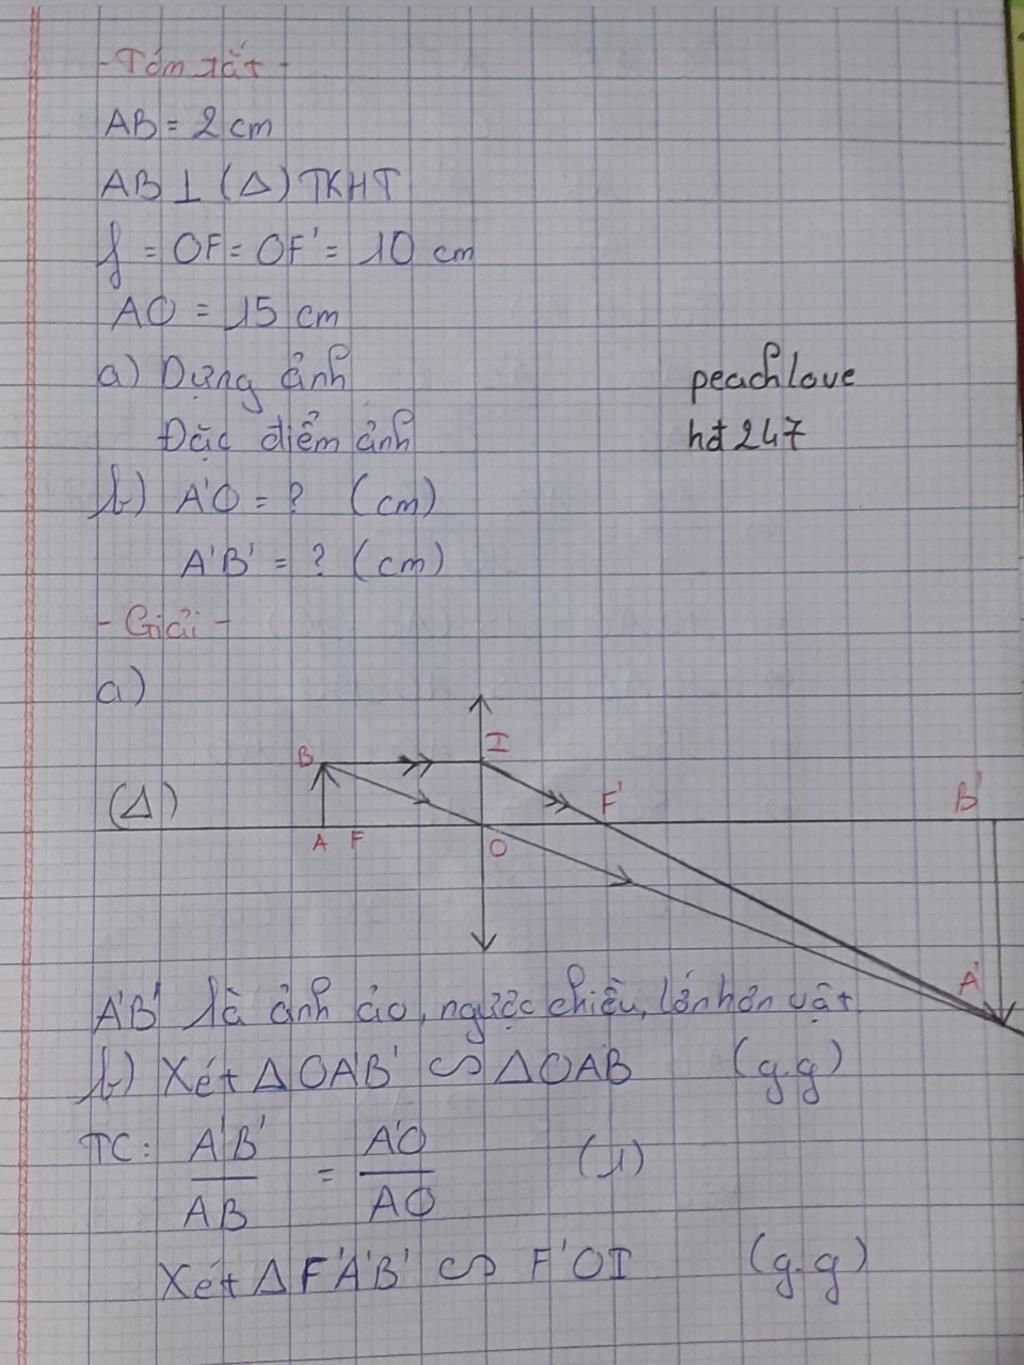 - Tóm tắt -
AB = 2 cm
AB ⊥ (Δ) TKHT
f = OF = OF' = 10 cm
AO = 15 cm
a) Dựng ảnh
Đặc điểm ảnh
peachlove
hđ247
b) A'O = ? (cm)
A'B' = ? (cm)
- Giải -
a)
I
B
(Δ)
F'
B'
A F
O
A'
A'B' là ảnh ảo, ngược chiều, lớn hơn vật
b) Xét ΔOA'B' ∽ ΔOAB (g.g)
TC: A'B'/AB = A'O/AO (1)
Xét ΔF'A'B' ∽ F'OI (g.g)